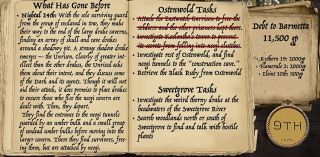 What Has Gone Before
• Nightal 24th: With the sole surviving guard
from the group of redcaps in tow, they make
their way to the end of the large drake cavern,
finding an array of skull and cave drakes
around a shadowy pit. A strange shadow drake
emerges — the Umbrax. Clearly of greater intellect
than the other drakes, the Umbrax asks
about their intent, and they discuss some
of the Dark and its agents. Though it will not
aid their attack, it does promise to place drakes
to ensure those who flee the naga cavern are
dealt with. Then, they depart.
They find the entrance to the naga tunnels
guarded by an umber hulk and a small group
of undead umber hulks before moving into the
larger cavern. There they find survivors,
but are attacked by nagi.
Ostenwold Tasks
• Attack the Eastwatch Garrison to free the
soldiers and the other prisoners kept there.
• Investigate Rookenford's tower to prevent
its secrets from falling into naga clutches.
• Investigate rest of Ostenwold, and find
naga tunnels to the "construction cave."
• Retrieve the Black Ruby from Ostenwold
Sweetgrove Tasks
• Investigate the weird thorny drake at the
headwaters of the Sweetgrove River
• Search woodlands north or south of
Sweetgrove to find and talk with hostile
plants
Debt to Barnetta
11,500 gp
1000g
1000g
500g
9TH